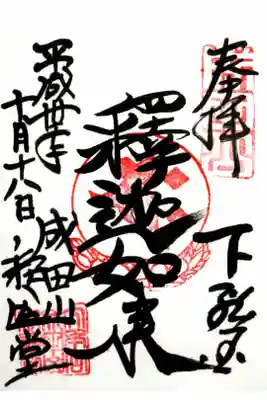 奉拝
下総国
釋迦如来
成田山
釈迦堂
平成年
十月十八日